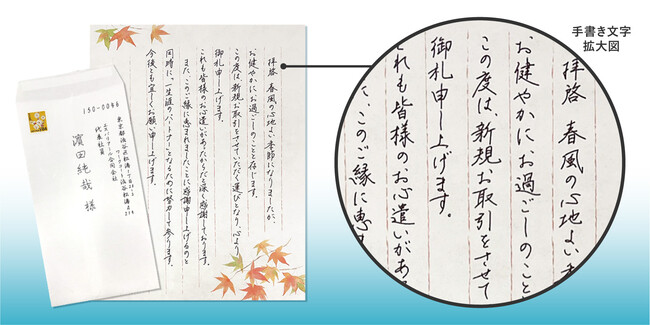 手書き文字
拡大図
拝啓 春風の心地よい季節になりましたが、
お健やかにお過ごしのことと存じます。
この度は、新規お取引をさせていただく運びとなり、心より
御札申し上げます。
これも皆様のお心遣いがあったからだと深く感謝しております。
また、このご縁に恵まれましたことに感謝申し上げるのと
同時に、一生涯のパートナーとなるために努力して参ります。
今後とも宜しくお願い申し上げます。
150-0046
東京都渋谷区松濤
合同会社
代表社員
濱田純哉 様
拝啓 春風の心地よい季
お健やかにお過ごしのこと
この度は、新規お取引をさせて
御札申し上げます。
れも皆様のお心遣いがあ
た、このご縁に恵